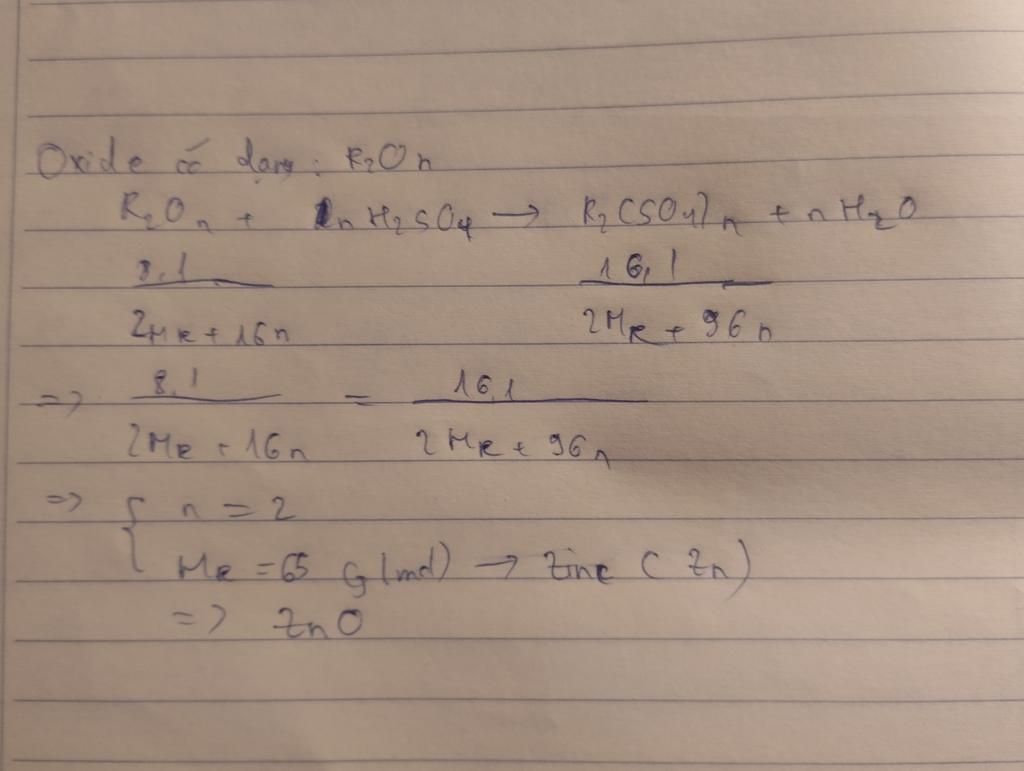 Oxide có dạng: R₂On
R₂Oₙ + nH₂SO₄ → R₂(SO₄)ₙ + nH₂O
8,1 16,1
2MR + 16n 2MR + 96n
=> 8,1 = 16,1
2MR + 16n 2MR + 96n
=> { n = 2
MR = 65 G/mol) → Zinc (Zn)
=> ZnO